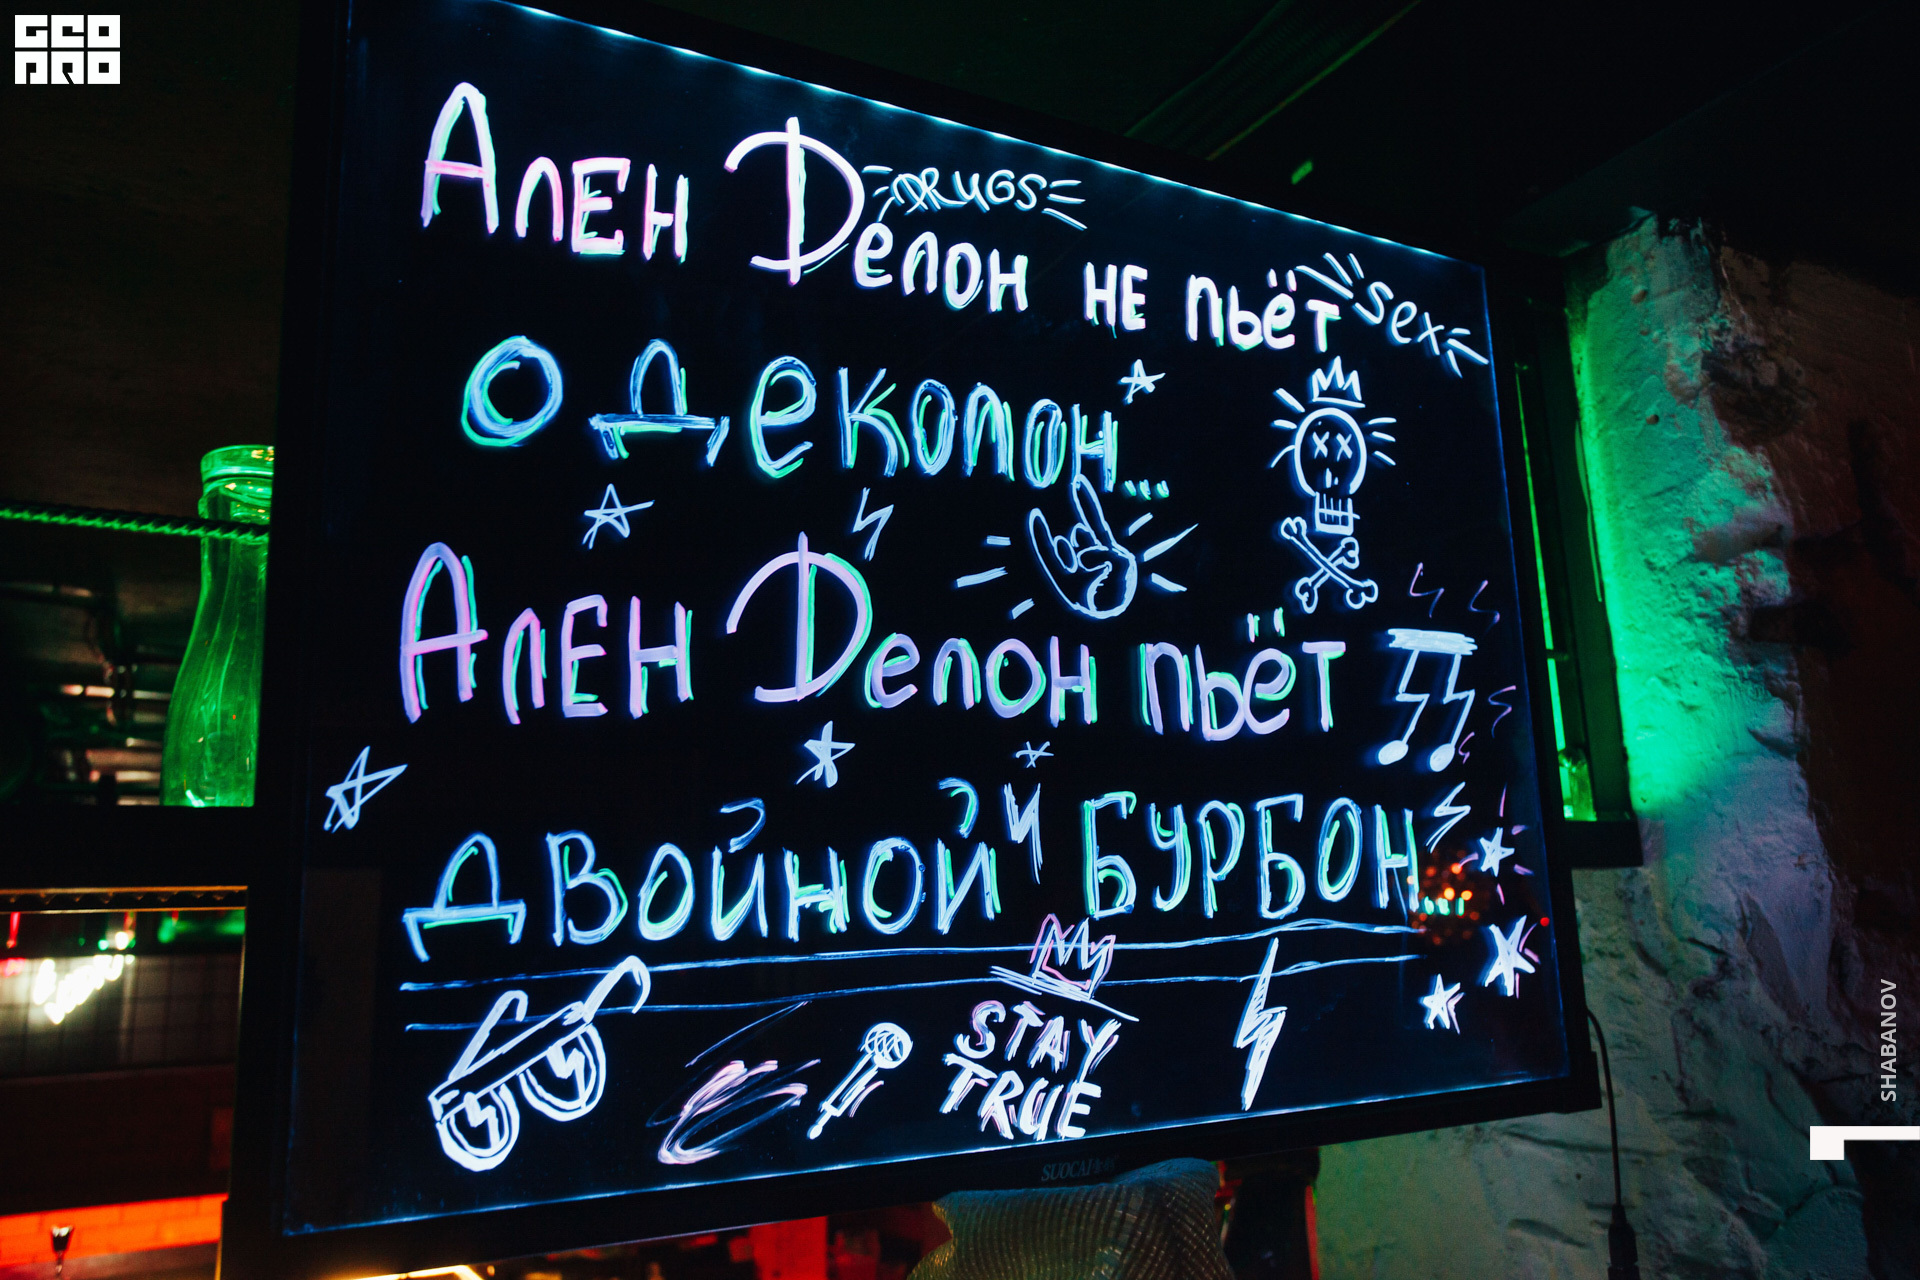 GEO
PRO
Ален Delон не пьёт
DRUGS
Sex
одеколон...
Ален Delон пьёт
двойной бурбон...
STAY
TRUE
SUOCAI
SHABANOV